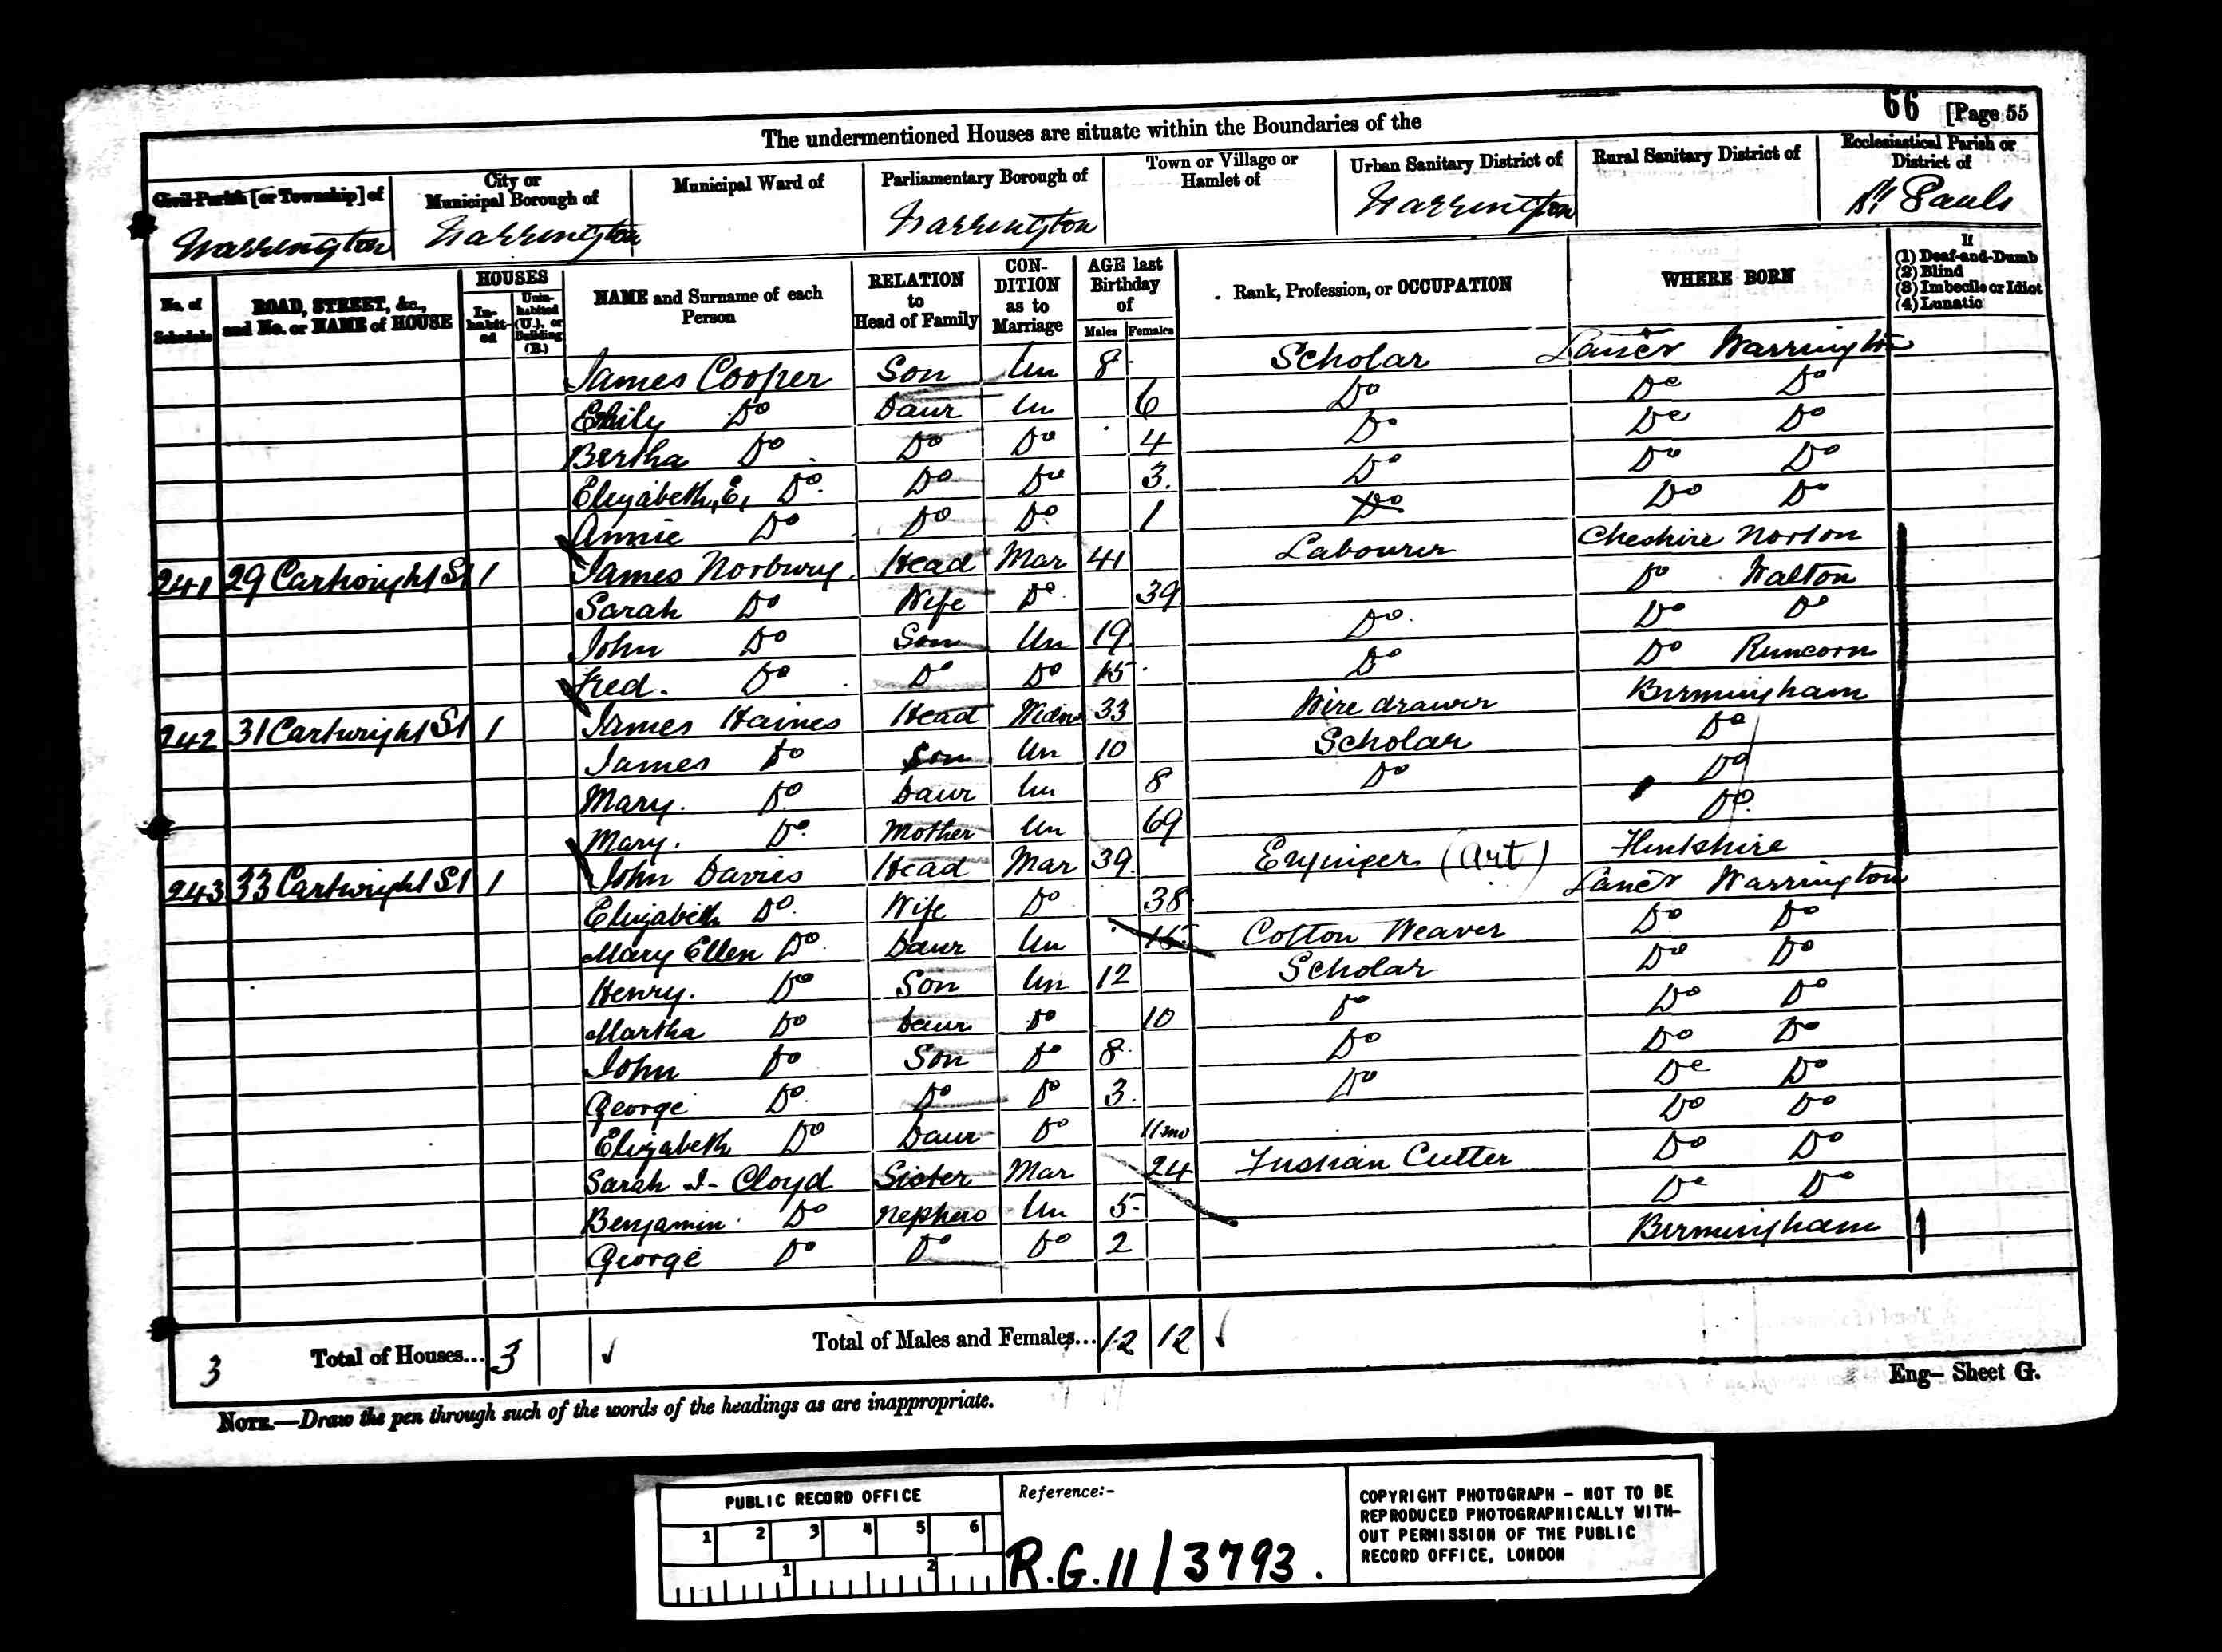 66 [Page 55
The undermentioned Houses are situate within the Boundaries of the
Civil Parish [or Township] of
City or Municipal Borough of
Municipal Ward of
Parliamentary Borough of
Town or Village or Hamlet of
Urban Sanitary District of
Rural Sanitary District of
Ecclesiastical Parish or District of
Warrington Warrington Warrington Warrington St Pauls
No. of Schedule
ROAD, STREET, &c., and No. or NAME of HOUSE
HOUSES
In-habit-ed
Unin-habited (U.), or Building (B.)
NAME and Surname of each Person
RELATION to Head of Family
CON-DITION as to Marriage
AGE last Birthday of
Males Females
Rank, Profession, or OCCUPATION
WHERE BORN
If
(1) Deaf-and-Dumb
(2) Blind
(3) Imbecile or Idiot
(4) Lunatic
James Cooper Son Un 8 Scholar Lancr Warrington
Emily Do Daur Un 6 Do Do Do
Bertha Do Do Do 4 Do Do Do
Elizabeth, E, Do Do Do 3 Do Do Do
Annie Do Do Do 1 Do Do Do
241 29 Cartwright St 1 James Norbury Head Mar 41 Labourer Cheshire Norton
Sarah Do Wife Do 39 Do Walton
John Do Son Un 19 Do Do Do
Fred. Do Do Do 15 Do Do Runcorn
242 31 Cartwright St 1 James Haines Head Widr 33 Wire drawer Birmingham
James Do Son Un 10 Scholar Do
Mary. Do Daur Un 8 Do Do
Mary. Do Mother Un 69 Do
243 33 Cartwright St 1 John Davies Head Mar 39 Enginger (Art) Flintshire
Elizabeth Do Wife Do 38 Lancr Warrington
Mary Ellen Do Daur Un 15 Cotton Weaver Do Do
Henry. Do Son Un 12 Scholar Do Do
Martha Do Daur Do 10 Do Do Do
John Do Son Do 8 Do Do Do
George Do Do Do 3 Do Do Do
Elizabeth Do Daur Do 11mo Do Do
Sarah I- Cloyd Sister Mar 24 Fushan Cutter Do Do
Benjamin Do Nephew Un 5 Do Do
George Do Do Do 2 Birmingham
3 Total of Houses... 3 Total of Males and Females... 12 12
Eng- Sheet G.
NOTE.—Draw the pen through such of the words of the headings as are inappropriate.
PUBLIC RECORD OFFICE
1 2 3 4 5 6
1 2
Reference:-
R.G. 11 / 3793.
COPYRIGHT PHOTOGRAPH - NOT TO BE
REPRODUCED PHOTOGRAPHICALLY WITH-
OUT PERMISSION OF THE PUBLIC
RECORD OFFICE, LONDON